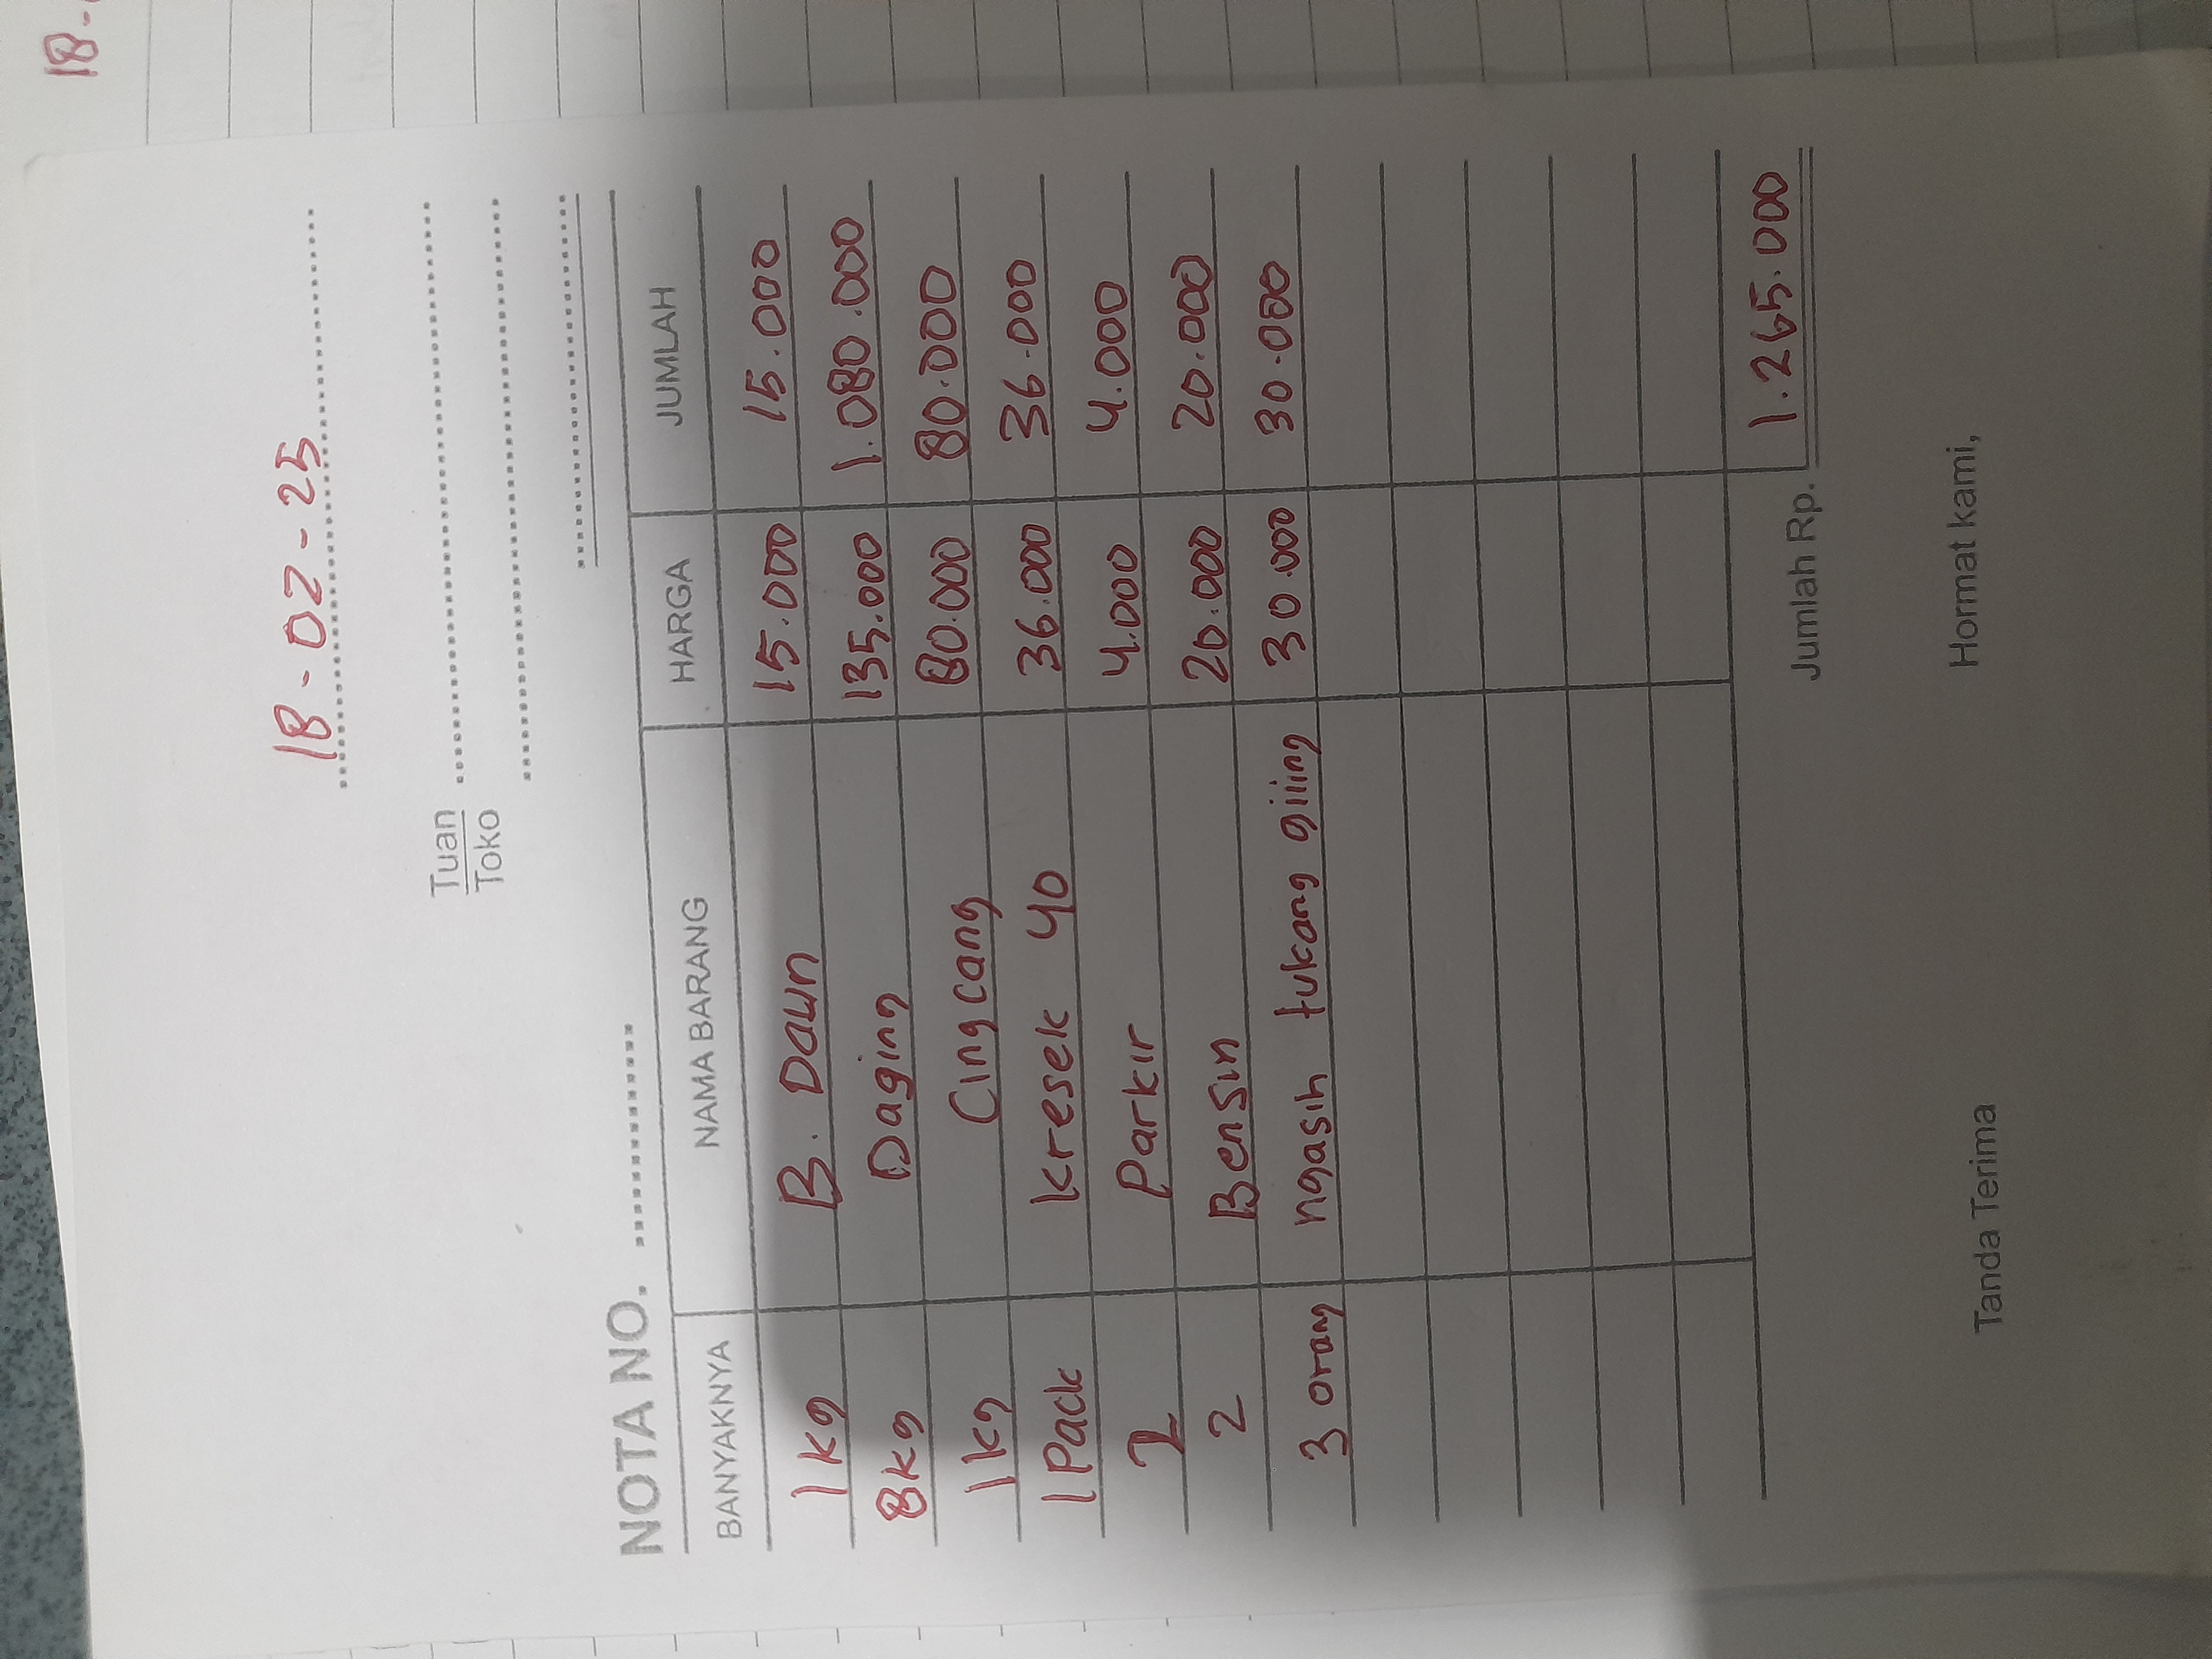 18-
18-02-25
Tuan
Toko
NOTA NO.
BANYAKNYA NAMA BARANG HARGA JUMLAH
1 kg B. Daun 15.000 15.000
8kg Daging 135.000 1.080.000
1kg Cingcang 80.000 80.000
1 Pack kresek 40 36.000 36.000
2 Parkir 4.000 4.000
2 Bensin 20.000 20.000
3 orang ngasih tukang giling 30.000 30.000
Jumlah Rp. 1.265.000
Tanda Terima Hormat kami,